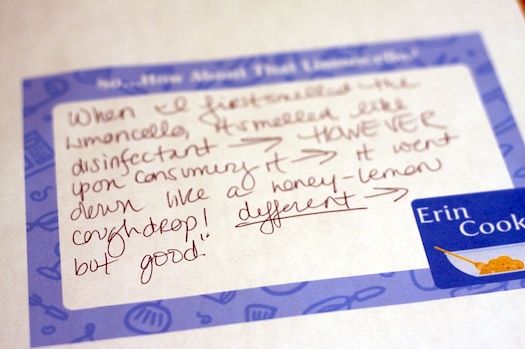 So...How About That Limoncello?
When I first smelled the
limoncello, it smelled like
disinfectant → HOWEVER
upon consuming it → it went
down like a honey-lemon
coughdrop! different →
but good."
Erin
Cook